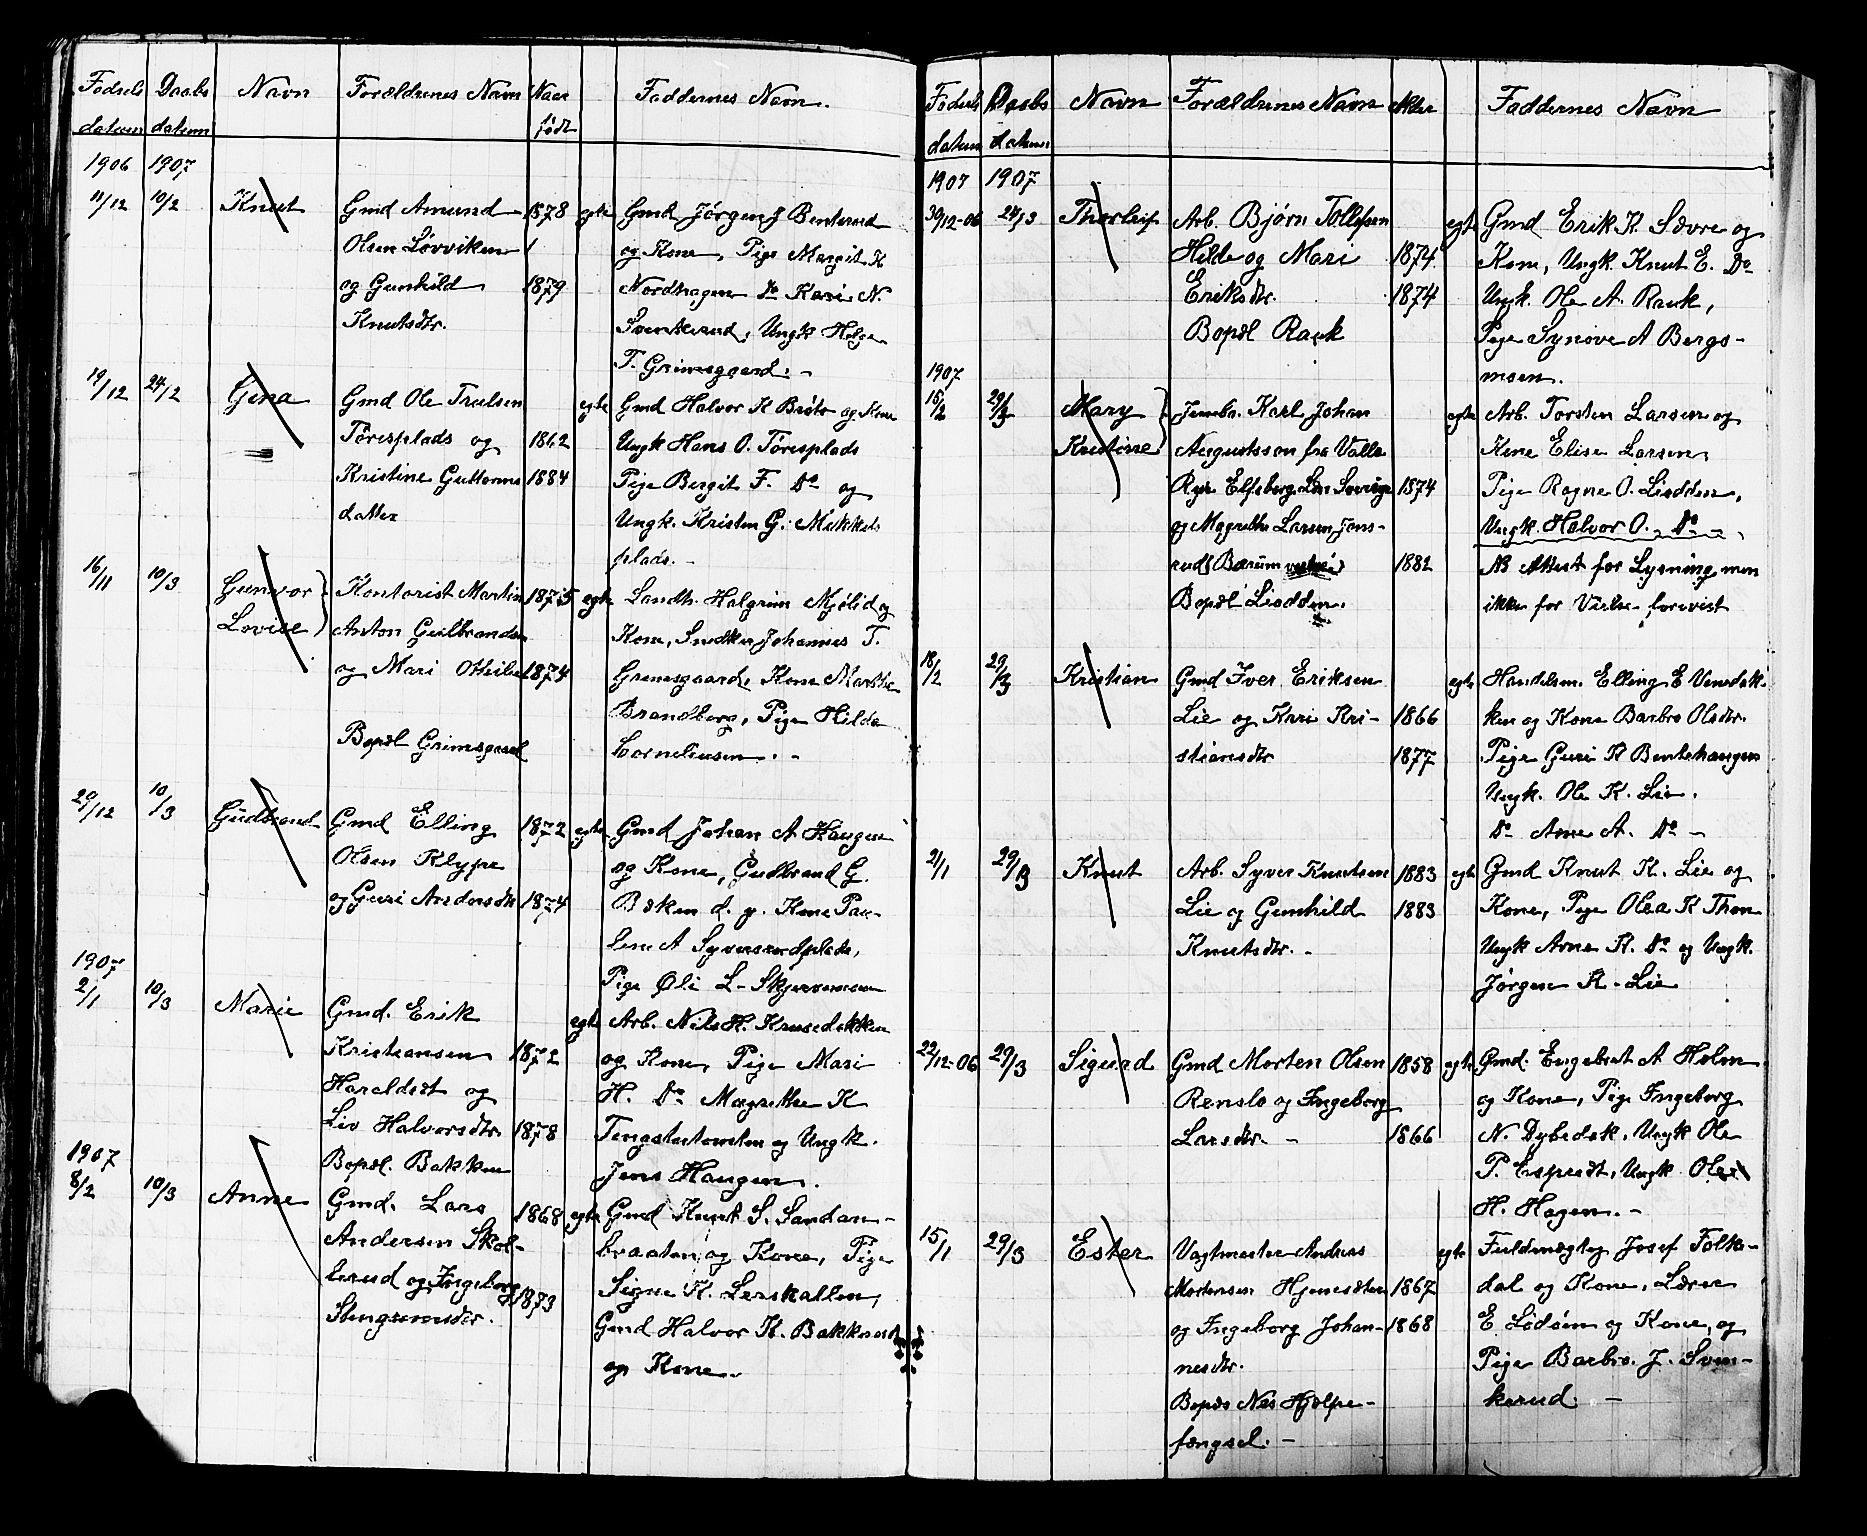 Fødsels Daabs Navn Forældrenes Navn Naar Faddernes Navn.
datum datum født
1906 1907
11/12 10/2 Knut Gmd Amund 1878 egte Gmd Jørgen J Benterud
Olsen Løvviken / og Kone, Pige Margit K
og Gunhild 1879 Nordhagen Do Kari N.
Knutsdtr. Svenkerud, Ungk Helge
T. Grimsgaard. -
19/12 24/2 Gina Gmd Ole Trulsen egte Gmd Halvor K Bråte og Kone
Tøresplads og 1862 Ungk Hans O. Tøresplads
Kristine Guttorms 1884 Pige Bergit F. Do og
datter Ungk. Kristen G. Mikkels
plads. -
16/11 10/3 Gunvor Kontorist Martin 1875 egte Landh. Halgrim Mjølid og
Lovise Anton Gulbrandsen Kone, Snedker Johannes T.
og Mari Othilie 1874 Grimsgaard, Kone Marthe
Brandborg, Pige Hilda
Bopæl Grimsgaard Corneliusen. -
29/12 10/3 Gudbrand Gmd Elling 1872 egte Gmd Johan A Haugen
Olsen Klype og Kone, Gudbrand G.
og Guri Andersdtr 1874 Bæken d. y. Kone Pau-
line A Syversrudplads,
Pige Øli L- Skjervemoen
1907
2/1 10/3 Marie Gmd. Erik egte Arb. Nils H. Krusedokken
Kristiansen 1872 og Kone, Pige Mari
Haraldset og H. Do Magrethe K
Liv Halvorsdtr. 1878 og Ungk.
Bopæl. Bakken Jens Haugen.
1907
8/2 10/3 Anne Gmd. Lars 1868 egte Gmd Knut S. Sandan-
Andersen Skol- braaten og Kone, Pige
lerud og Ingeborg 1873 Signe K. Lerskallen,
Stengrimsdtr. Gmd Halvor K. Bakkerud
og Kone.
Fødsels Daabs Navn Forældrenes Navn Alder Faddernes Navn
datum datum
1907 1907
30/12-06 24/3 Thorleif Arb. Bjørn Tollefsen egte Gmd Erik K Sævre og
Hilde og Mari 1874 Kone, Ungk. Knut E. Do
Eriksdtr. 1874 Ungk. Ole A. Rauk,
Bopæl Rauk Pige Synøve A Bergs-
moen.
1907
15/2 29/3 Mary Jernba. Karl Johan egte Arb. Torsten Larsen og
Kristine Augustsson fra Valle Kone Elise Larsen,
Ryr Elfsborg Län Sverige 1874 Pige Ragne O. Liodden,
og Magrethe Larsen, Jons- Ungk. Halvor O. Do -
rud, Bærum 1882 NB Attest for Lysning men
Bopæl Liodden. ikke for Vielse forevist
18/2 29/3 Kristian Gmd Iver Eriksen egte Handelsm. Elling E Venedok-
Lie og Kari Kri- 1866 ken og Kone Barbro Olsdtr.
stiansdtr 1877 Pige Guri K Bentehaugen
Ungk. Ole K. Lie.
Do Arne A. Do -
2/1 29/3 Knut Arb. Syver Knutsen 1883 egte Gmd Knut K. Lie og
Lie og Gunhild 1883 Kone, Pige Olea K Thon
Knutsdtr. - Ungk Arne K. Do og Ungk.
Jørgen K. Lie
22/12-06 29/3 Sigurd Gmd Morten Olsen 1858 egte Gmd. Engebret A Holm
Renslo og Ingeborg og Kone, Pige Ingeborg
Larsdtr. - 1866 N. Dybedok, Ungk Ole
P. Espeset, Ungk Ole
H. Hagen. -
15/1 29/3 Ester Vagtmester Andreas egte Fuldmægtig Josef Folke-
Mortensen Hjemsæter 1867 dal og Kone, Lærer
og Ingeborg Johan- 1868 E Lodøen og Kone, og
nesdtr. Pige Barbro. J. Sven-
Bopæs Nes Hjælpe- kerud. -
fængsel. -